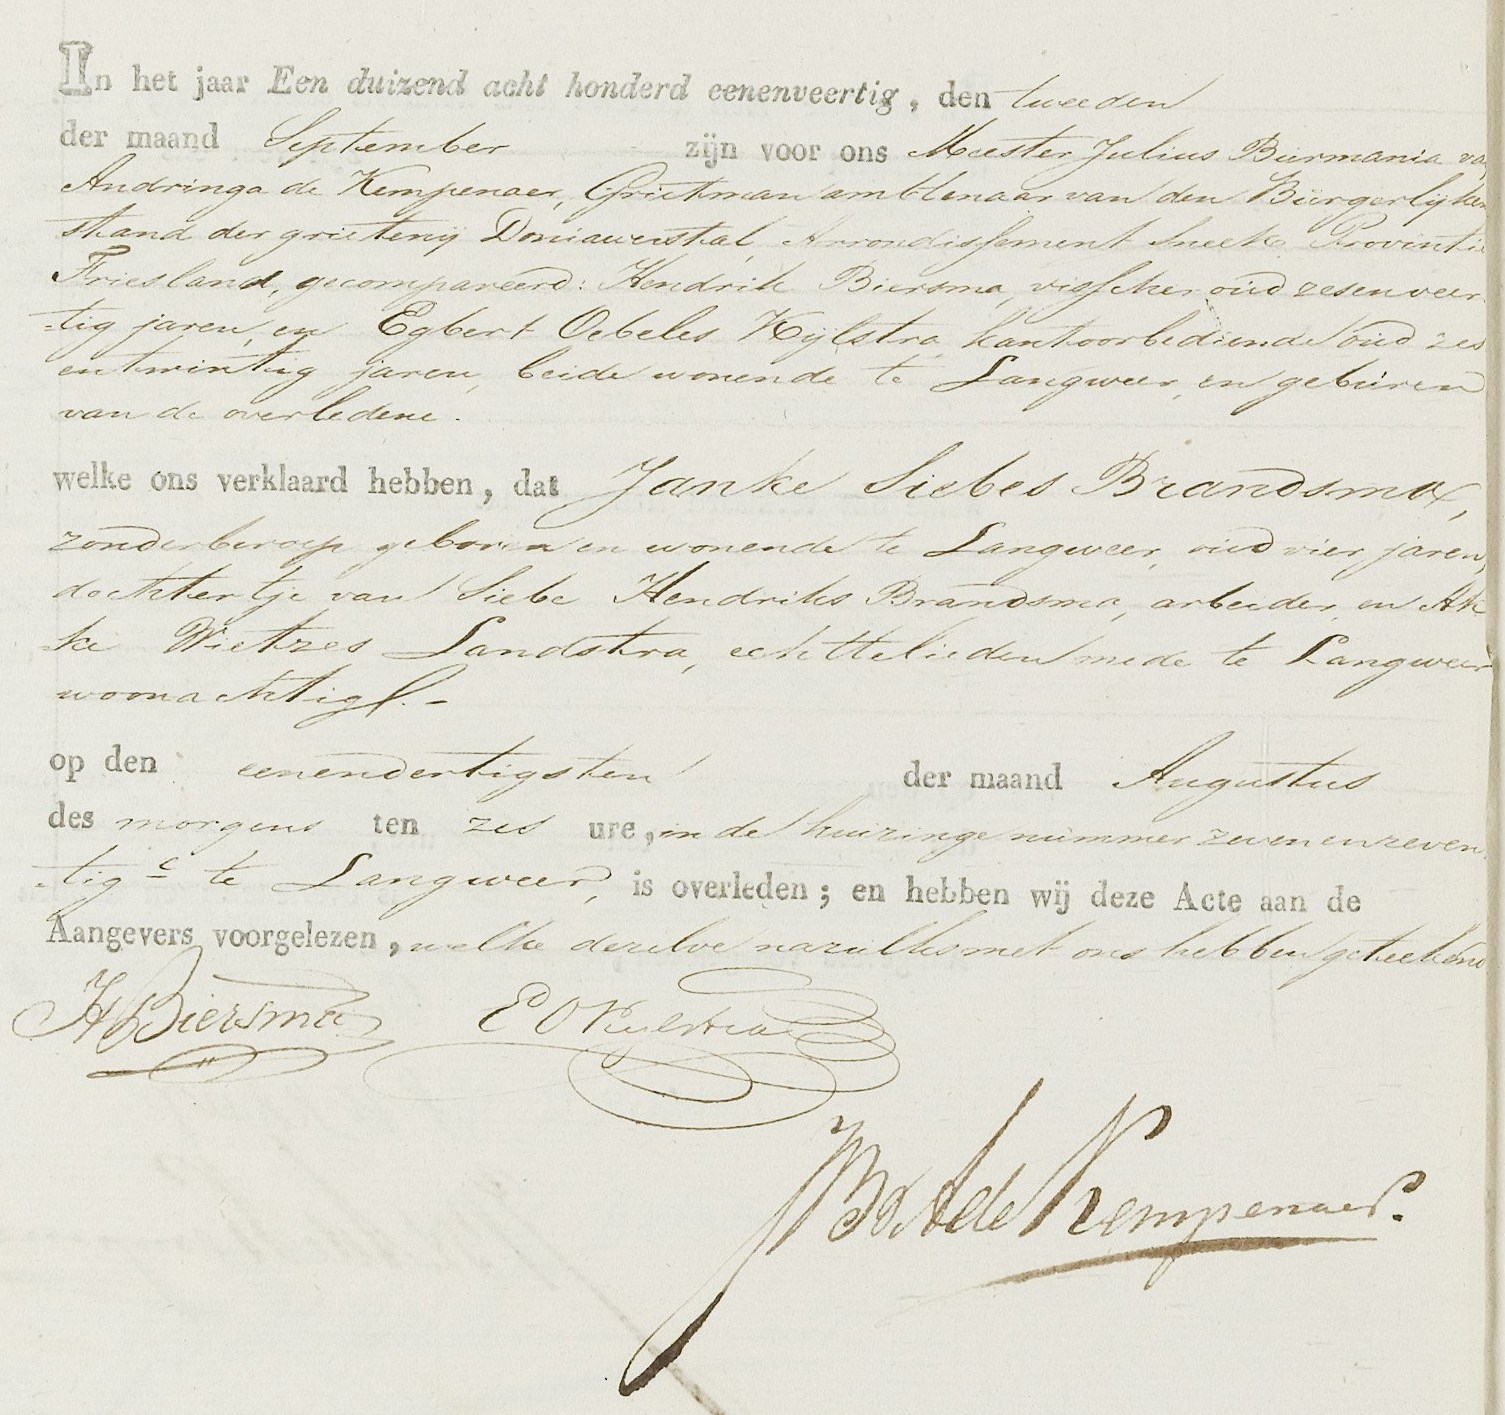 In het jaar Een duizend acht honderd eenenveertig, den tweeden
der maand September zijn voor ons Meester Julius Biermania va
Andringa de Kempenaer, Grietman ambtenaar van den Burgerlijken
stand der grietenij Doniawerstal, Arrondissement Sneek Provintie
Friesland, gecompareerd: Hendrik Biersma, visscher oud zesenveer
-tig jaren, en Egbert Oebeles Kijlstra, kantoorbediende oud zes
entwintig jaren, beide wonende te Langweer, en geburen
van de overledene.
welke ons verklaard hebben, dat Janke Siebes Brandsma,
zonder beroep geboren en wonende te Langweer, oud vier jaren,
dochtertje van Siebe Hendriks Brandsma, arbeider, en Ak
-ke Wietzes Landstra, echtelieden mede te Langweer
woonachtig.-
op den eenendertigsten der maand Augustus
des morgens ten zes ure, in de huizinge nummer zeven en zeven
-tig c te Langweer, is overleden; en hebben wij deze Acte aan de
Aangevers voorgelezen, welke dezelve na resumptie met ons hebben geteekend
H Biersma E O Kijlstra
JBvAde Kempenaer.